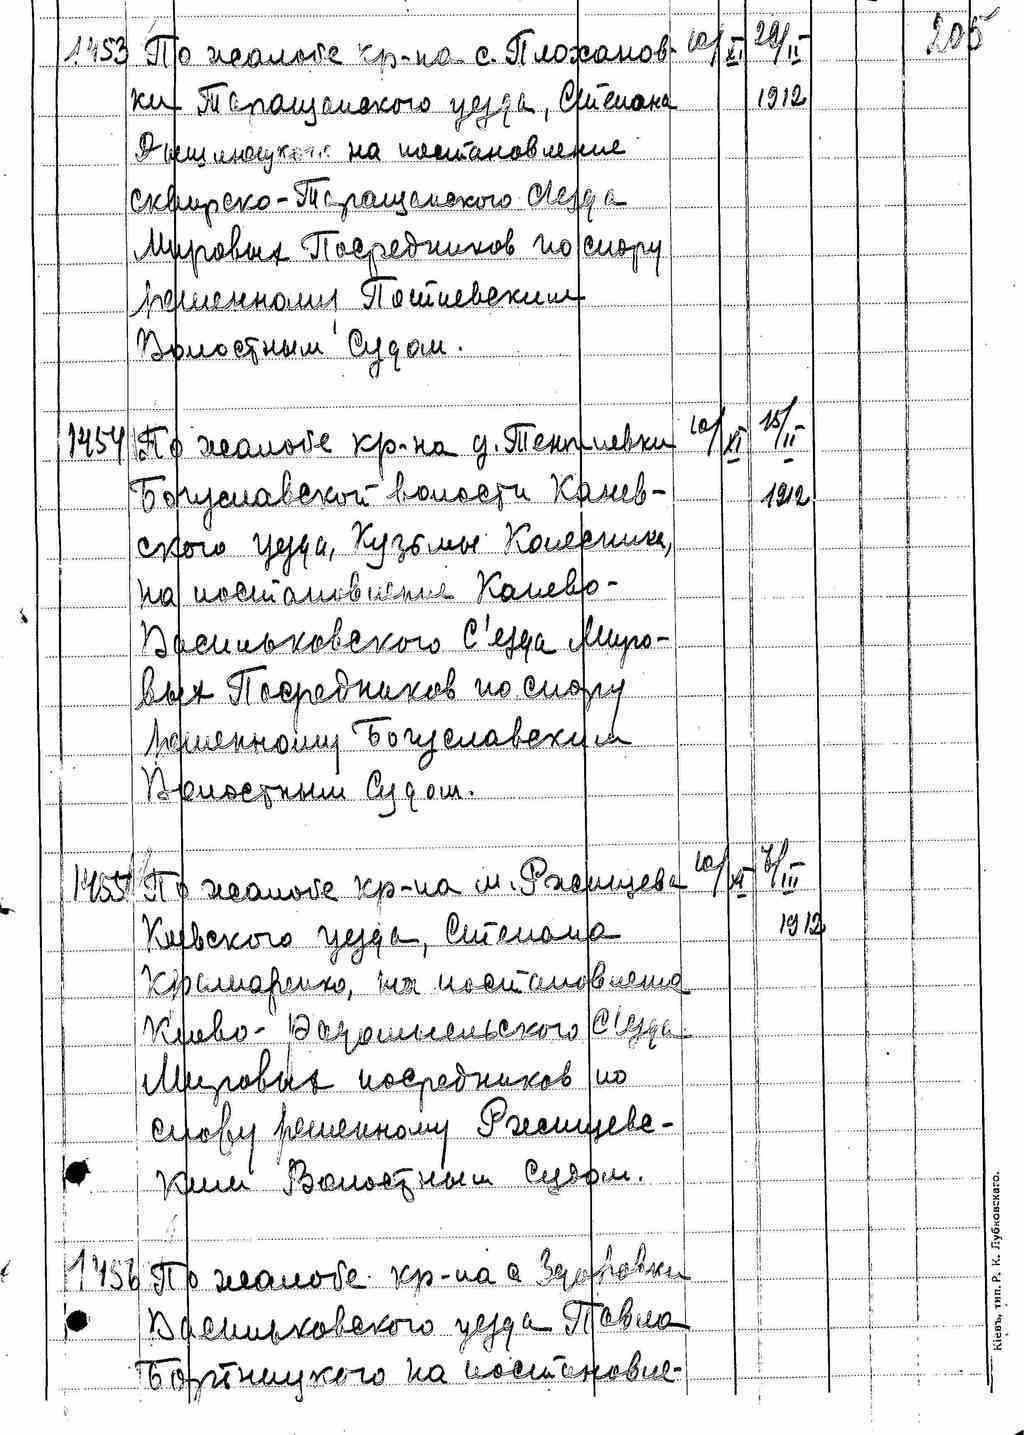 205
1453 По жалобе кр-на с. Плоханов- 10/XI 29/II
ки Таращанского уезда, Степана 1912
на постановление
Сквирско-Таращанского Съезда
Мировых Посредников по спору
решенному Пятиевским
Волостным Судом.
1454 По жалобе кр-на д. Тептиевки 10/XI 15/II
Богуславской волости Канев- 1912
ского уезда, Кузьмы Колесника,
на постановление Канево-
Васильковского С'езда Миро-
вых Посредников по спору
решенному Богуславским
Волостным Судом.
1455 По жалобе кр-на м. Ржищева 10/XI 7/III
Киевского уезда, Степана 1912
Крамаренко, на постановление
Киево-Радомысльского С'езда
Мировых посредников по
спору решенному Ржищевс-
ким Волостным Судом.
1456 По жалобе кр-на с Здоровки
Васильковского уезда Павла
Бортницкого на постановле-
Кіевъ, тип. Р. К. Лубковскаго.